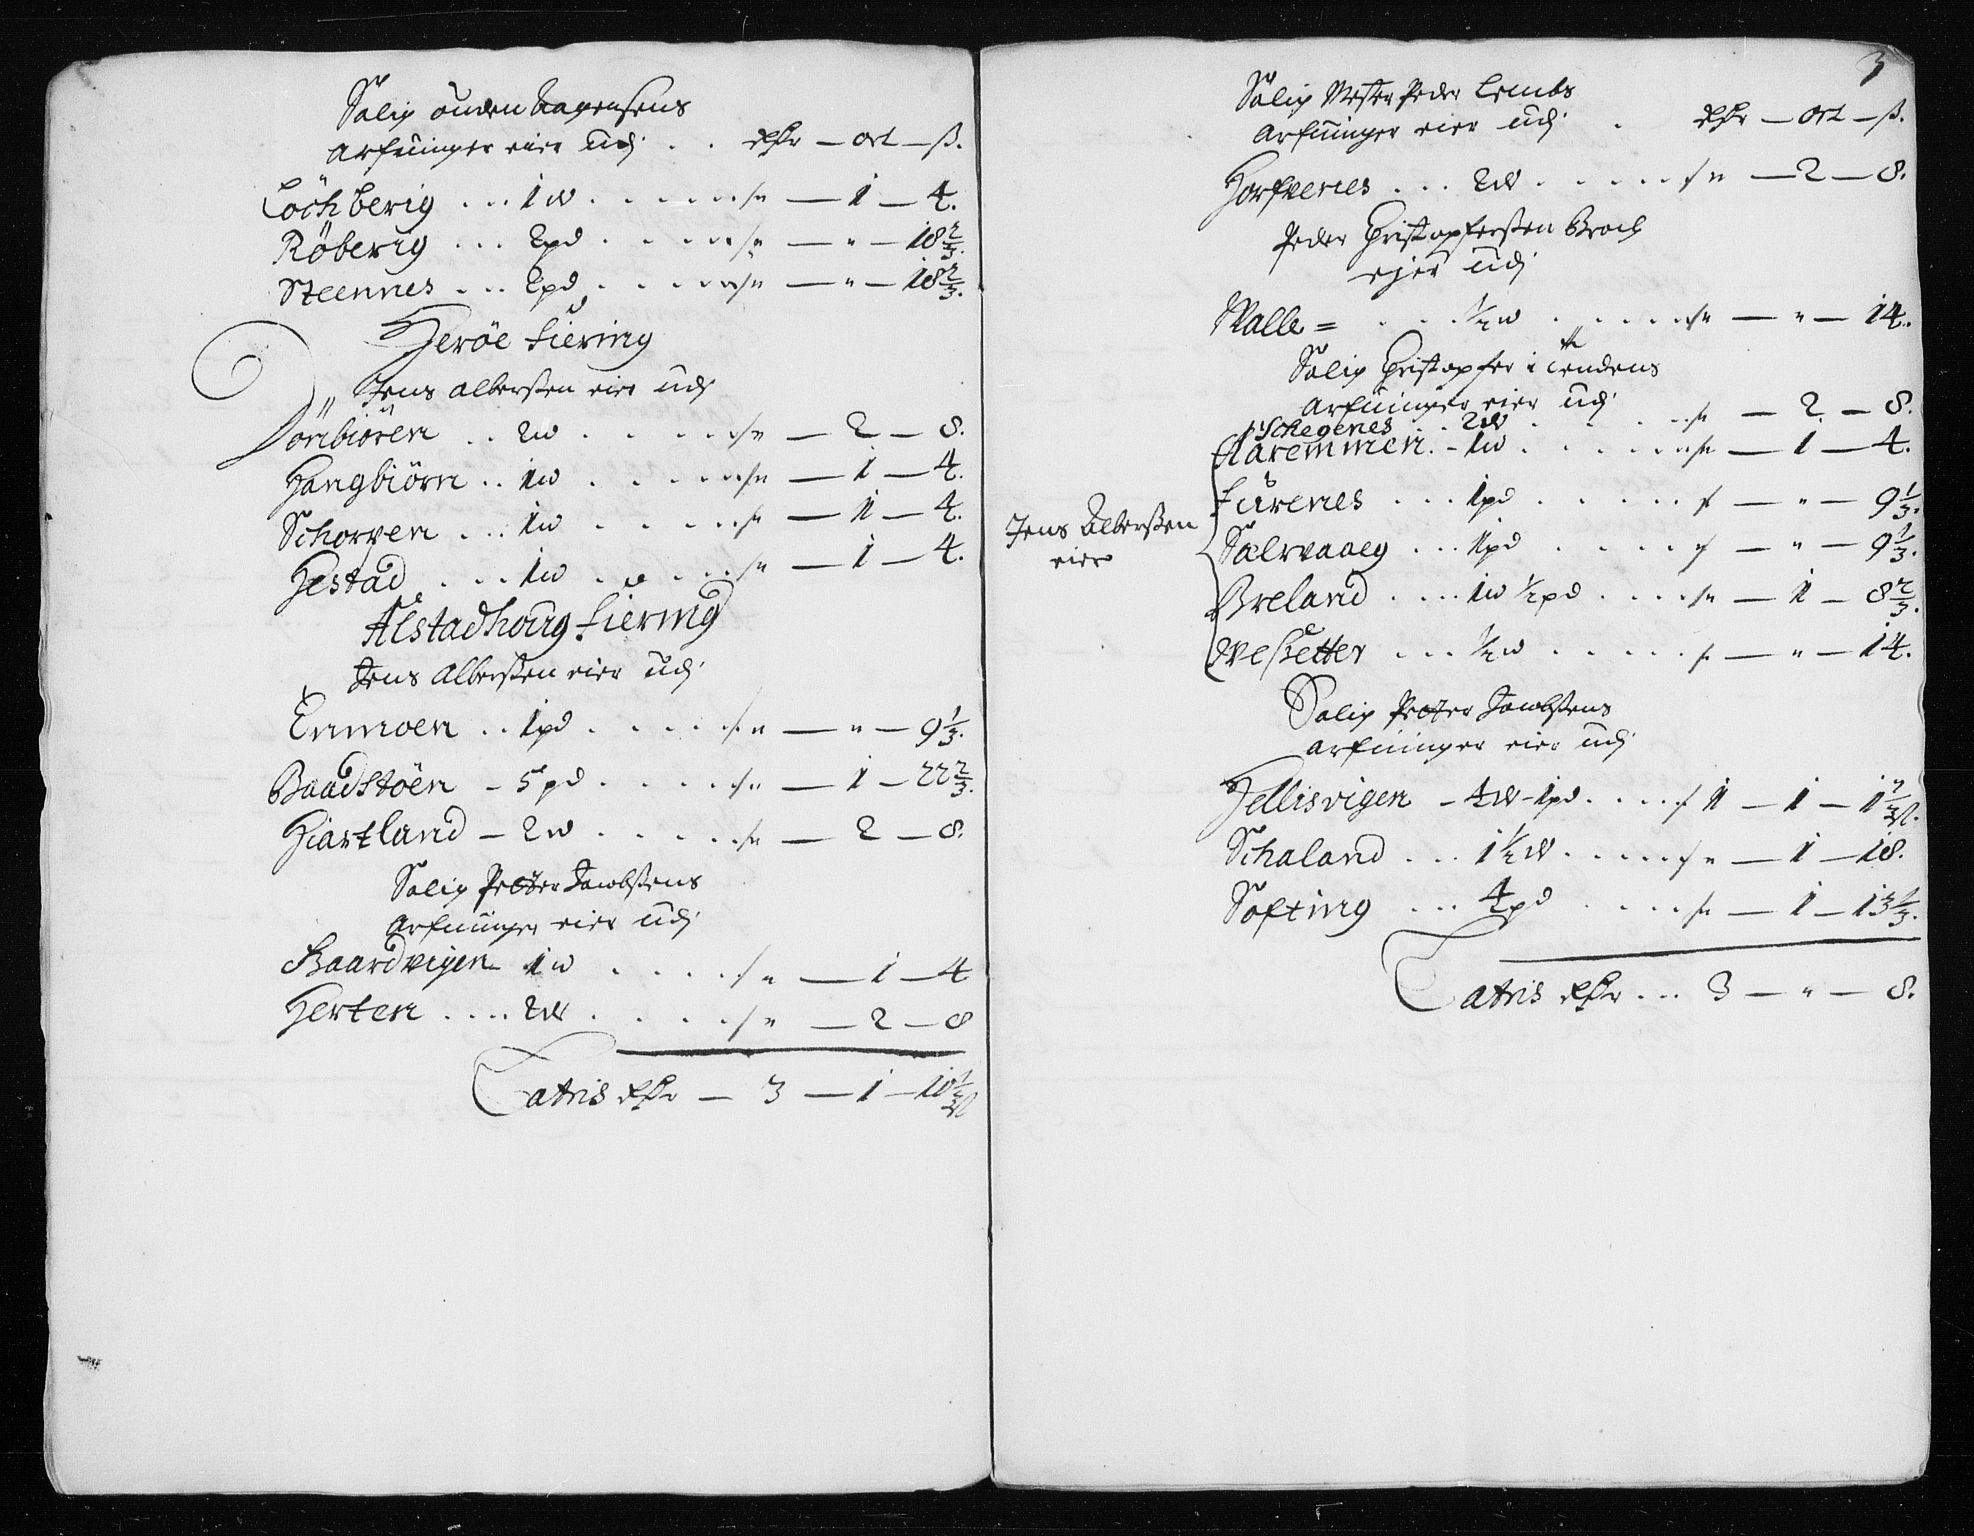 Salig
Arfuinger eier udj . . Rdr — ort — ß.
Löchberig . . . 1 w . . . . . — 1 — 4.
Röberig . . . 2 pd . . . . — " — 18 2/3.
Steennes . . . 2 pd . . . . — " — 18 2/3.
Heröe Fiering
Jens Alberßen eier udj
Örnbiören . . 2 w . . . . — 2 — 8.
Hangbiörn . . 1 w . . . . — 1 — 4.
Schorpen . . . 1 w . . . . — 1 — 4.
Hestad . . . 1 w . . . . — 1 — 4.
Alstadhoug Fiering
Jens Alberßen eier udj
Enmoen . . 1 pd . . . . — " — 9 1/3.
Baadstöen - 5 pd . . . . — 1 — 22 2/3.
Hiartland — 2 w . . . . — 2 — 8.
Salig Petter Jacobßens
Arfuinger eier udj
Baardvigen 1 w . . . . — 1 — 4
Herten . . . . 2 w . . . . — 2 — 8
Latris Rdr — 3 — 1 — 10 1/2 ß
3
Salig Mester Peder Lembs
Arfuinger eier udj . Rdr — ort — ß.
Horfvenes . . . 2 w . . . . — 2 — 8.
Peder Christopferßen Broch
ejer udj
Walle = . . . 1/2 w . . . . — " — 14.
Salig Christopfer i Tendens
Arfuinger eier udj
Schegenes . . 2 w . . . . — 2 — 8.
Aaremmen . - 1 w . . . . — 1 — 4.
Furenes . . . 1 pd . . . . — " — 9 1/3.
Jens Alberßen
eier
Sælrvaag . . . 1 pd . . . . — " — 9 1/3.
Breland . . . . 1 w 1/2 pd . . . . — 1 — 8 2/3.
Weßetter . . . 1/2 w . . . . — " — 14.
Salig Petter Jacobßens
Arfuinger eier udj
Hellisvigen - 4 w - 1 pd . . . . 1 — 1 — 1 1/3 ß.
Schaland . . . 1 1/2 w . . . . — 1 — 18.
Softing . . . 4 pd . . . . — 1 — 13 1/3.
Latris Rdr . . . 3 — " — 8.